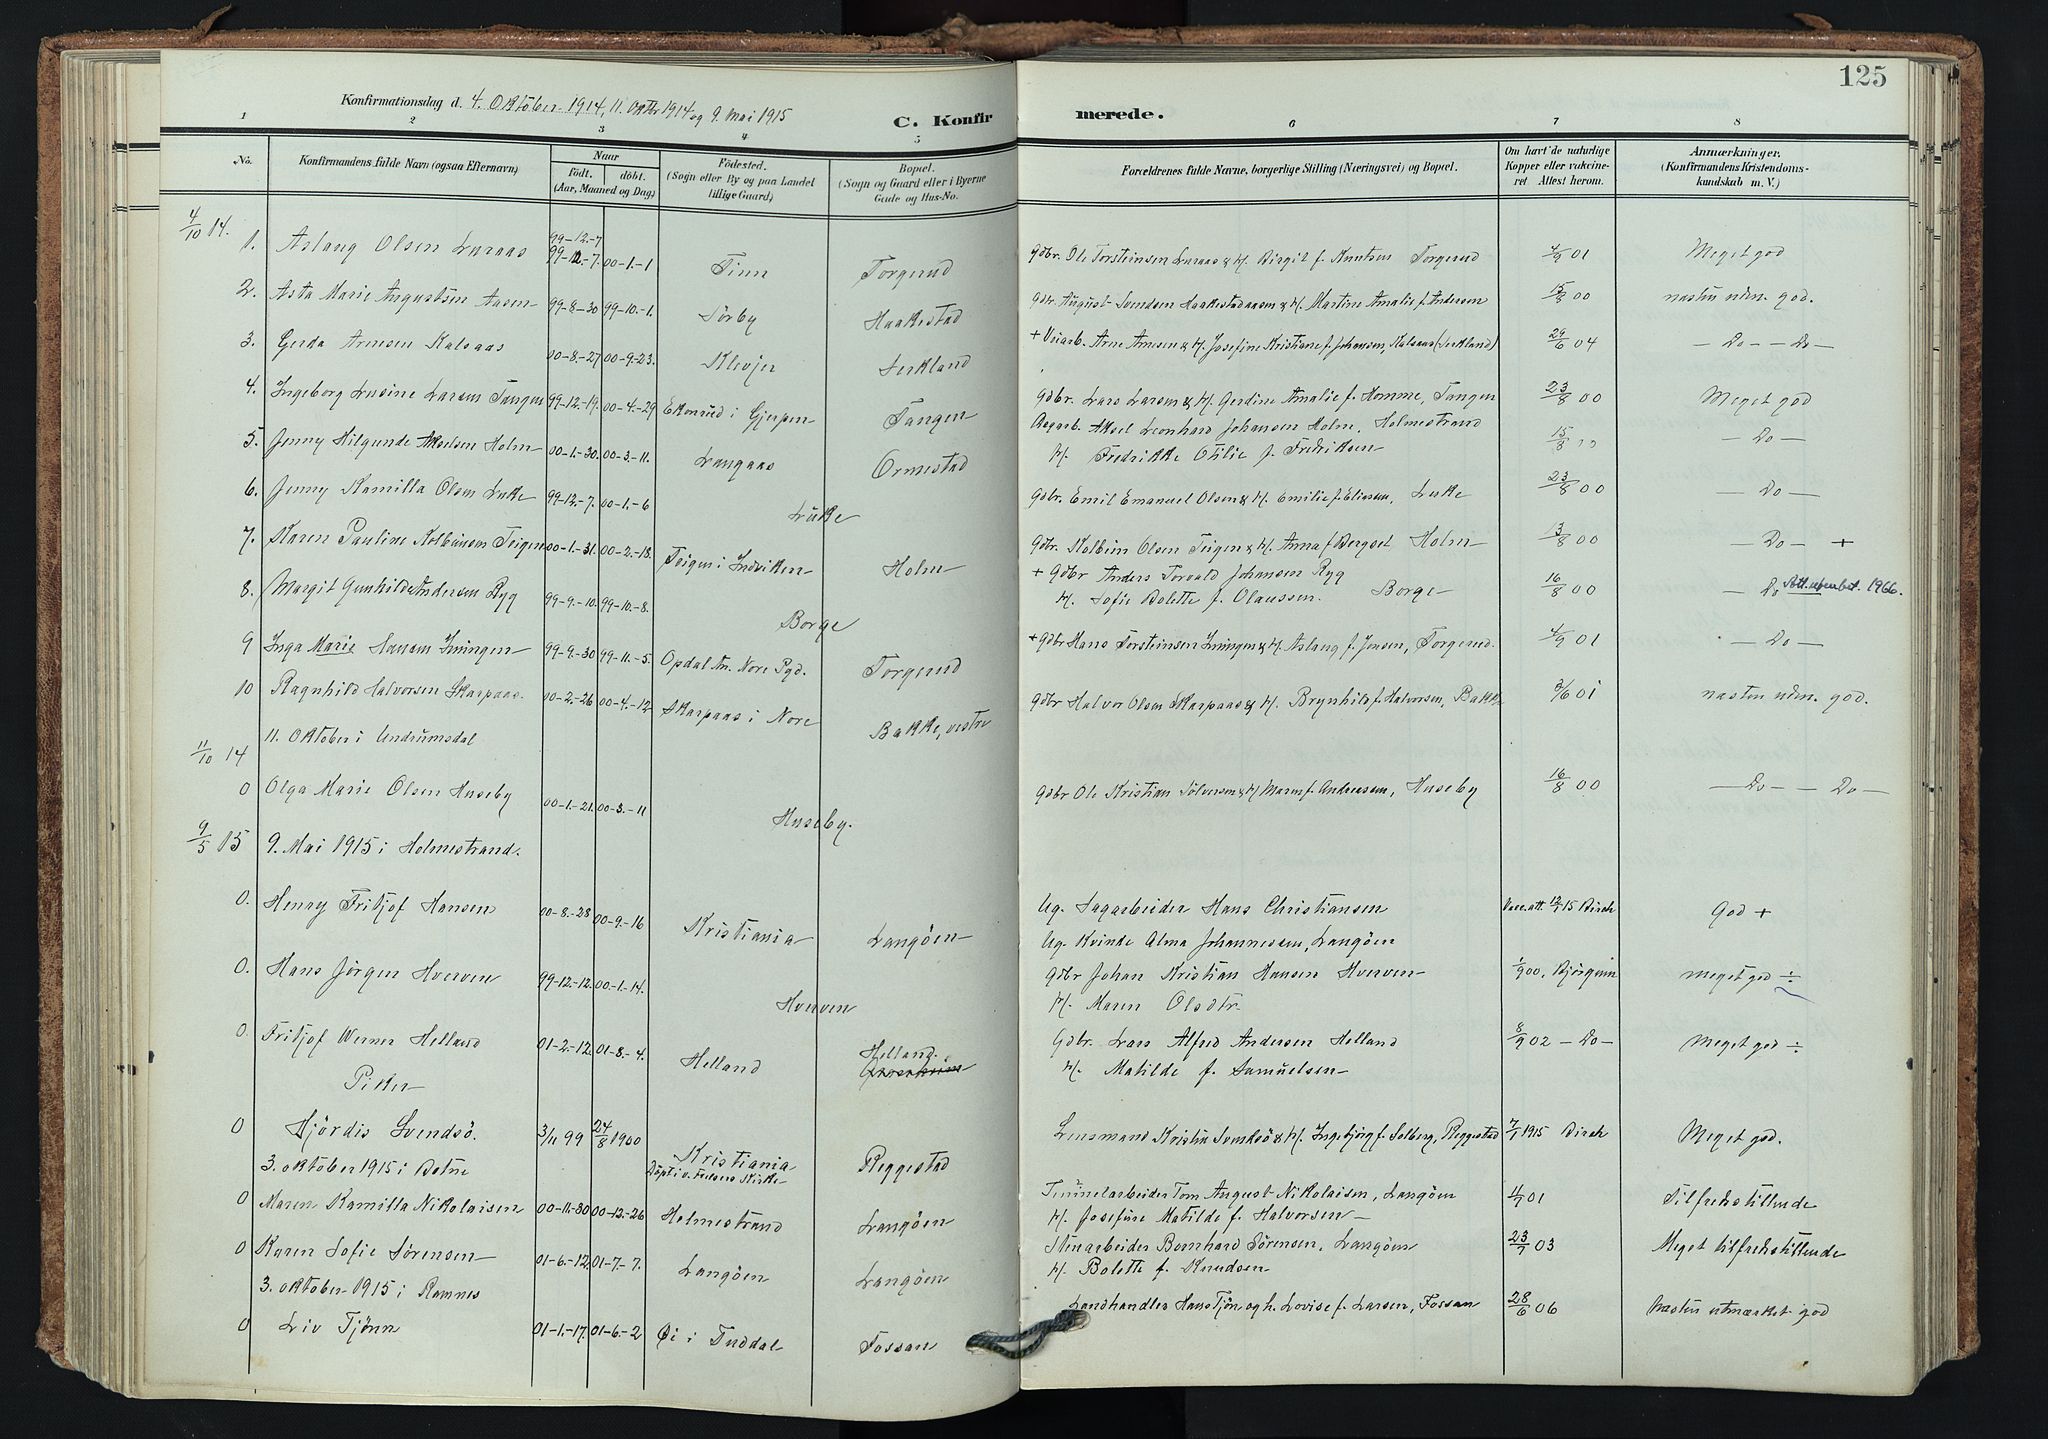 125
Konfirmationsdag d. 4. Oktober 1914, 11. Oktbr 1914 og 9. Mai 1915
C. Konfirmerede.
1 2 3 4 5 6 7 8
No.
Konfirmandens fulde Navn (ogsaa Efternavn)
Naar
födt. döbt.
(Aar, Maaned og Dag)
Födested.
(Sogn eller By og paa Landet
tillige Gaard)
Bopæl.
(Sogn og Gaard eller i Byerne
Gade og Hus-No.
Forældrenes fulde Navne, borgerlige Stilling (Næringsvei) og Bopæl.
Om havt de naturlige
Kopper eller vakcine-
ret Attest herom.
Anmærkninger.
(Konfirmandens Kristendoms-
kundskab m. V.)
4/10 14.
99-12-7
1. Aslaug Olsen Luraas 99-12-7. 00-1-1 Tinn Torgerud Gdbr. Ole Torsteinsen Luraas & H. Birgit f. Knutsen Torgerud 4/9 01 Meget god
2. Asta Marie Augustsen Aasen 99-8-30 99-10-1. Sörby Haakestad Gdbr. August Svendsen Haakestadaasen & H. Martine Amalie f. Andersen 15/8 00 næsten uden. god.
3. Gerda Arnesen Kalsaas 00-8-27 00-9-23. Klevjer Serkland + Veiarb. Arne Arnesen & H. Josefine Kristiane f. Johansen, Kalsaas (Serkland) 29/6 04 — Do — — Do —
4. Ingeborg Lusine Larsen Tangen 99-12-19. 00-4-29 Ekornrud i Gjerpen Tangen Gdbr. Lars Larsen & H. Gerdine Amalie f. Homme, Tangen 23/8 00 Meget god
5. Jenny Hilgunde Akselsen Holm 00-1-30. 00-3-11. Langaas Ormestad Aksel Leonhard Johansen Holm, Holmestrand 15/8 — Do —
H. Fredrikke Otilie f. Fredriksen
6. Jenny Kamilla Olsen Lukke 99-12-7. 00-1-6 Lukke Gdbr. Emil Emanuel Olsen & H. Emilie f. Eliasen, Lukke 23/8 00 — Do —
7. Karen Pauline Kolbeinsen Teigen 00-1-31. 00-2-18. Teigen i Indviken Holm Gdbr. Kolbein Olsen Teigen & H. Anna f. Berget Holm 13/8 00 — Do — +
8. Margit Gunhilde Andersen Ryg 99-9-10. 99-10-8. Borge + Gdbr Anders Torvald Johansen Ryg 16/8 00 — Do Att. utsendt. 1966.
H. Sofie Bolette f. Olaussen. Borge
9 Inga Marie Hansen Imingen 99-9-30 99-11-5. Opdal An. Nore Pgd. Torgerud + Gdbr Hans Torsteinsen Imingen & H. Aslaug f. Jonsen, Torgerud. 4/9 01 — Do —
10 Ragnhild Halvorsen Skarpaas. 00-2-26 00-4-12 Skarpaas i Nore Bakke, vestre Gdbr Halvor Olsen Skarpaas & H. Brynhild f. Halvorsen, Bakke 01 næsten uden. god.
11/10 14 11. Oktober i Undrumsdal
0 Olga Marie Olsen Huseby 00-1-21. 00-3-11 Huseby. Gdbr Ole Kristian Sölversen & H. Maren f. Andreasen, Huseby 16/8 00 — Do — — Do —
9/5 15 9. Mai 1915 i Holmestrand.
0. Henry Fritjof Hansen 00-8-28 00-9-16 Kristiania Langöen Ug. Sagarbeider Hans Christiansen Vacc. att. 15 Birch God +
Ug. Kvinde Alma Johannessen, Langöen
0. Hans Jörgen Hverven 99-12-12. 00-1-14. Hverven Gdbr Johan Kristian Hansen Hverven 1/9 00. Björguin Meget god ÷
H. Maren Olsdtr.
0. Fritjof Werner Helland 01-2-12. 01-8-4. Helland Helland. Gdbr. Lars Alfred Andersen Helland 8/9 02 — Do — Meget god ÷
H. Matilde f. Samuelsen
Piker
0 Hjördis Svendsö. 3/11 99 24/8 1900 Kristiania Reggestad Lensmand Kristin Svendsö & H. Ingebjörg f. Solberg, Reggestad 7/1 1915 Birch Meget god.
Döpt i v. Frelsers Kirke
3. oktober 1915 i Botne
0 Maren Kamilla Nikolaisen 00-11-30 00-12-26 Holmestrand Langöen Tunnelarbeider Tom August Nikolaisen, Langöen 01 Tilfredsstillende
H. Josefine Matilde f. Halvorsen
0 Karen Sofie Sörensen 01-6-12 01-7-7. Langöen Langöen Stenarbeider Bernhard Sörensen, Langöen 23/7 03 Meget tilfredsstillende
H. Bolette f. Knudsen
3. oktober 1915 i Ramnes
0 Liv Tjönn 01-1-17. 01-6-2 Öi i Tuddal Fossan Landhandler Hans Tjön og h. Lovise f. Larsen, Fossan 28/6 06 Næsten utmærket god